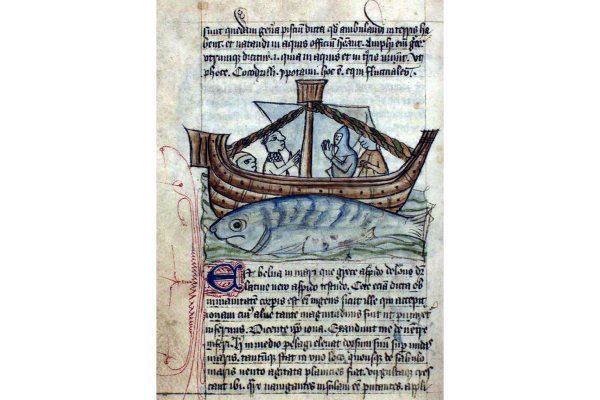 sunt quedam gena pisciu dicta qd ambulandi in terris ha
bent. et natandi in aquis officiu heant. Amphi em
utrumq dicitur .i. quia in aquis et in tris uiuut. Vt
phoce. Cocodrilli. ypotami. hoc e. equi fluctuales.
Est belua in mari que grece aspido delone dr
latine uero aspido testudo. Cete eciam dicta ob
immanitatem corpis est em ingens sicut ille qui accepit
ionam cui alue tante magnitudinis fuit ut putaret
infernus. Dicente ipo iona. Exaudiuit me de uentre
inferi. H in medio pelagi eleuat dorsum suum sup undas
maris. tantumq stat in uno loco. quousq de sabulo
maris uento agitata planicies fiat. uirgultaq cres
cant ibi. Qre nauigantes insulam ee putantes. appli